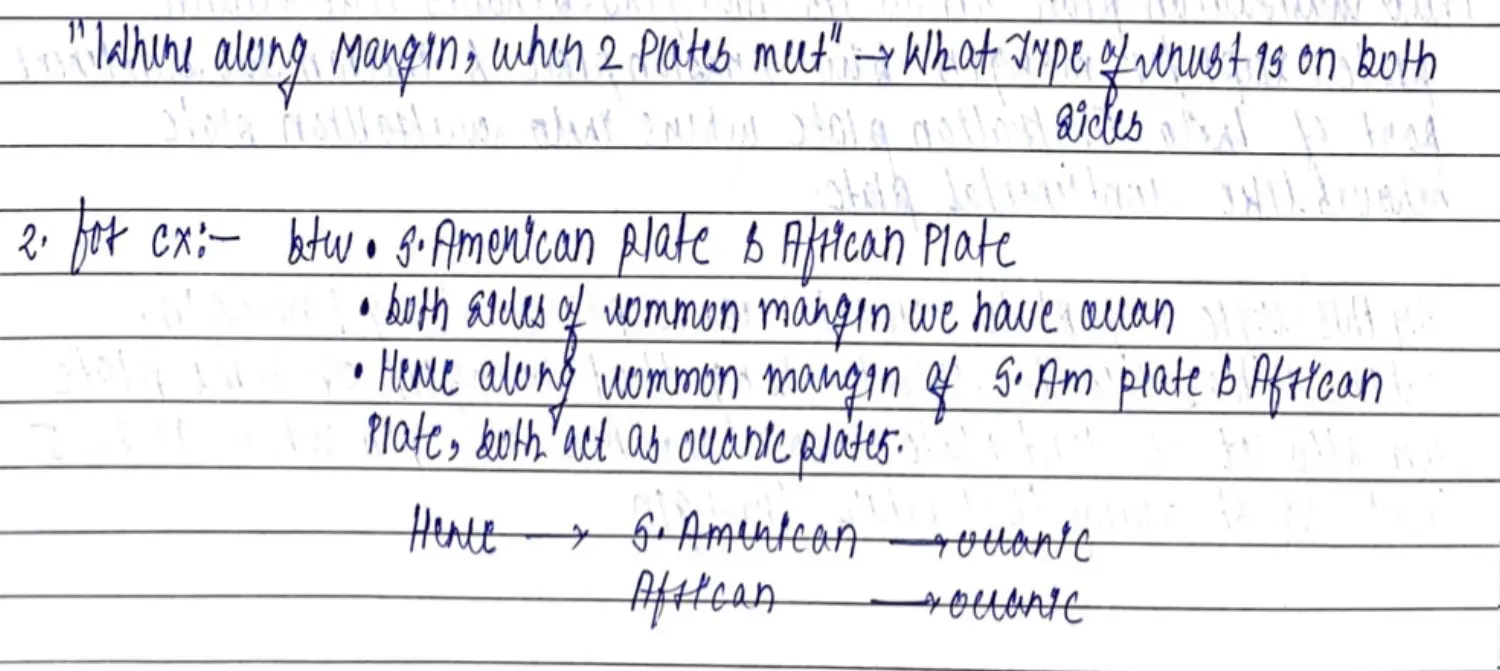 "Where along Margin, when 2 Plates meet" → What Type of crust is on both
sides
2. for ex:- btw • S. American plate & African Plate
• both sides of common margin we have ocean
• Hence along common margin of S. Am plate & African
Plate, both act as oceanic plates.
Hence → S. American → oceanic
African → oceanic